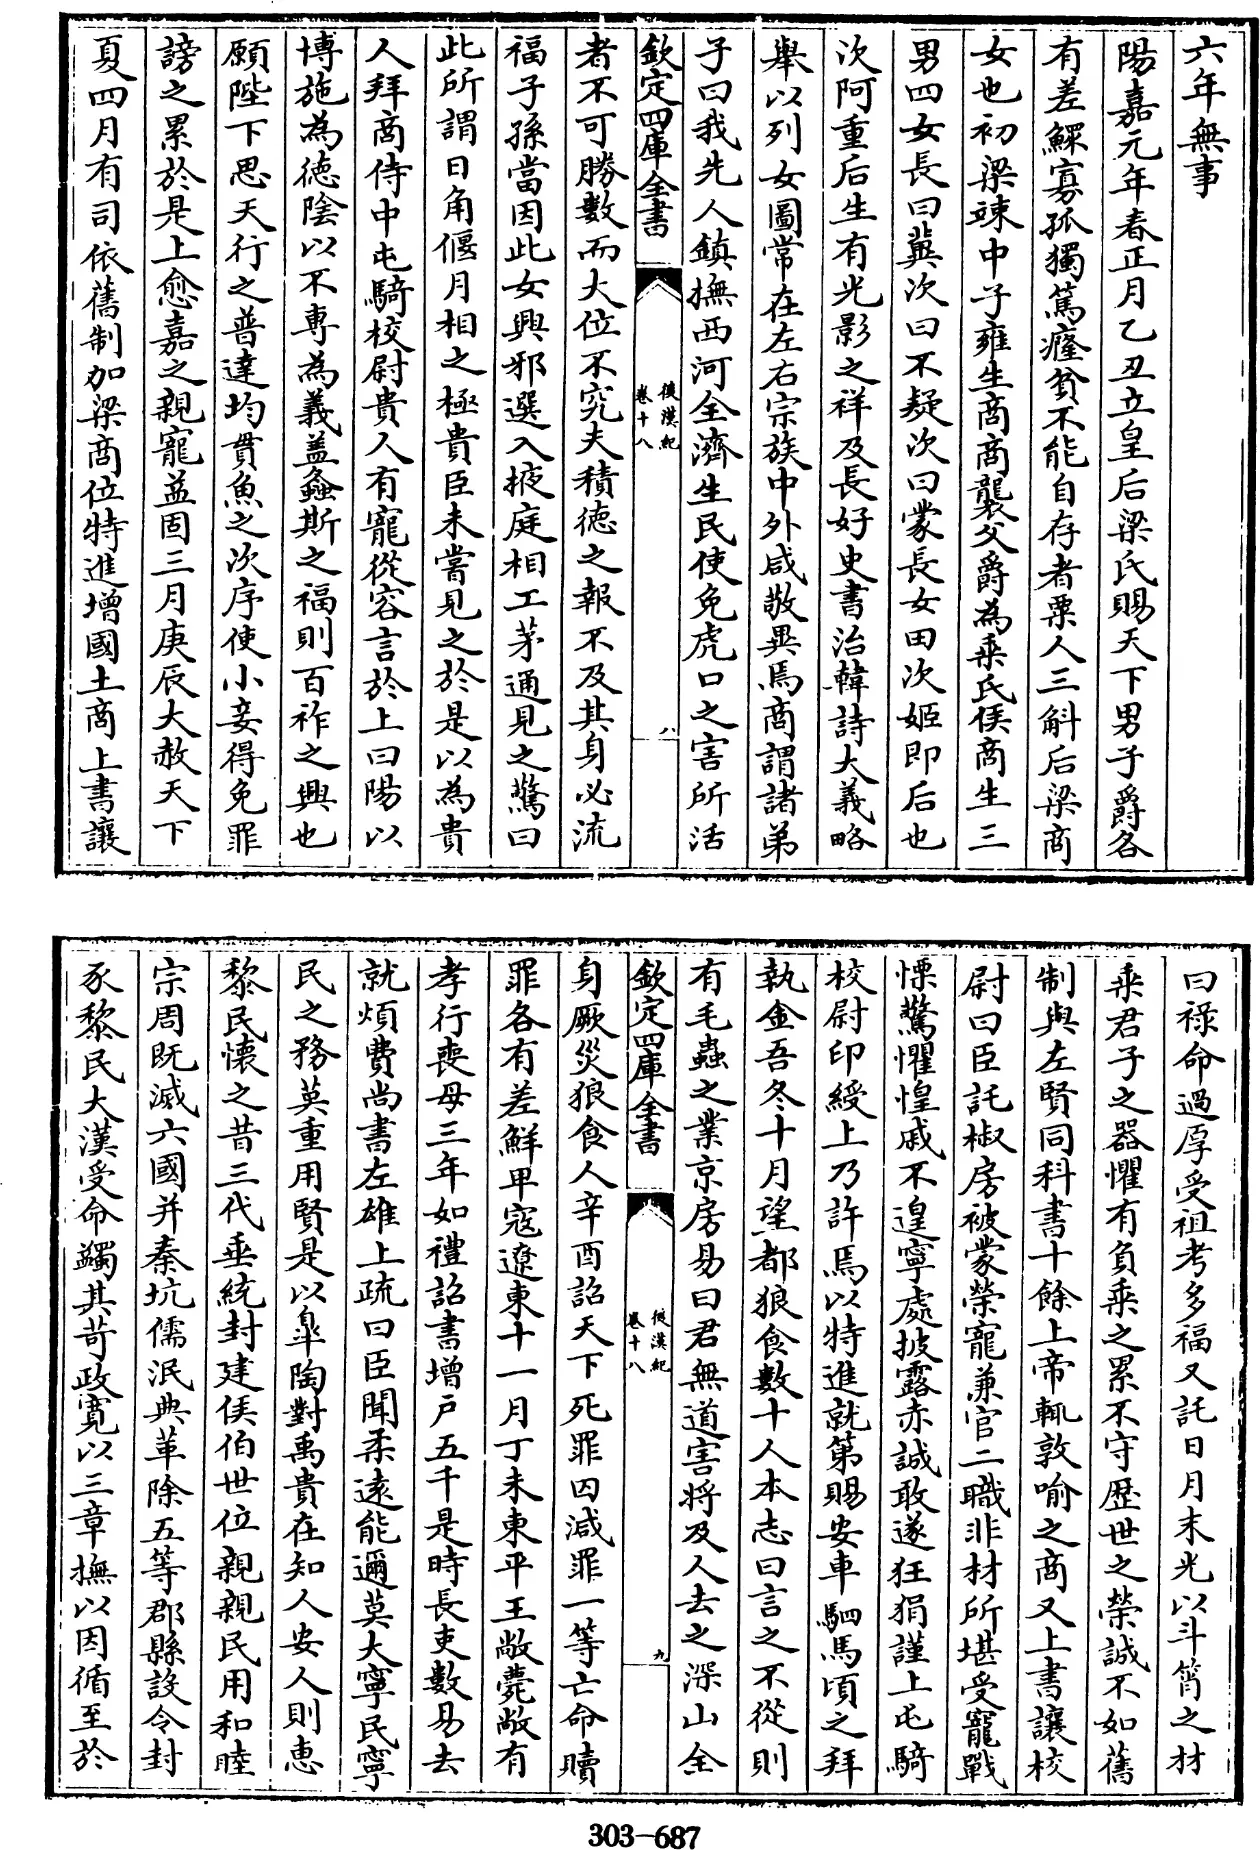 六年無事
陽嘉元年春正月乙丑立皇后梁氏賜天下男子爵各
有差鰥寡孤獨篤癃貧不能自存者粟人三斛后梁商
女也初梁竦中子雍生商商襲父爵為乗氏侯商生三
男四女長曰冀次曰不疑次曰蒙長女田次姬即后也
次阿重后生有光影之祥及長好史書治韓詩大義略
舉以列女圖常在左右宗族中外咸敬異焉商謂諸弟
子曰我先人鎮撫西河全濟生民使免虎口之害所活
欽定四庫全書
後漢紀
卷十八
八
者不可勝數而大位不究夫積徳之報不及其身必流
福子孫當因此女興邪選入掖庭相工茅通見之驚曰
此所謂日角偃月相之極貴臣未嘗見之於是以為貴
人拜商侍中屯騎校尉貴人有寵從容言於上曰陽以
博施為徳陰以不專為義蓋螽斯之福則百祚之興也
願陛下思天行之普達均貫魚之次序使小妾得免罪
謗之累於是上愈嘉之親寵益固三月庚辰大赦天下
夏四月有司依舊制加梁商位特進增國土商上書讓
曰祿命過厚受祖考多福又託日月末光以斗筲之材
乗君子之器懼有負乗之累不守歴世之榮誠不如舊
制與左賢同科書十餘上帝輒敦喻之商又上書讓校
尉曰臣託椒房被蒙榮寵兼官二職非材所堪受寵戰
慄驚懼惶戚不遑寧處披露赤誠敢遂狂狷謹上屯騎
校尉印綬上乃許焉以特進就第賜安車駟馬頃之拜
執金吾冬十月望都狼食數十人本志曰言之不從則
有毛蟲之業京房易曰君無道害將及人去之深山全
欽定四庫全書
後漢紀
卷十八
九
身厥災狼食人辛酉詔天下死罪囚減罪一等亡命贖
罪各有差鮮卑寇遼東十一月丁未東平王敞薨敞有
孝行喪母三年如禮詔書增戶五千是時長吏數易去
就煩費尚書左雄上疏曰臣聞柔逺能邇莫大寧民寧
民之務莫重用賢是以臯陶對禹貴在知人安人則惠
黎民懷之昔三代垂統封建侯伯世位親親民用和睦
宗周既滅六國并秦坑儒泯典革除五等郡縣設令封
豕黎民大漢受命蠲其苛政寛以三章撫以因循至於
303-687